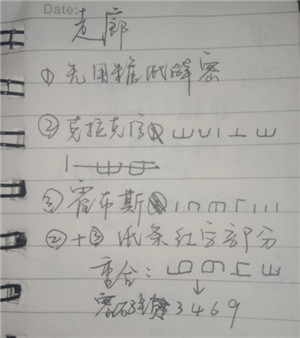 Date:
走廊
① 先用糖纸解密
② 克拉克序
③ 霍布斯
②+③ 纸条红字部分
重合:
密码 3469